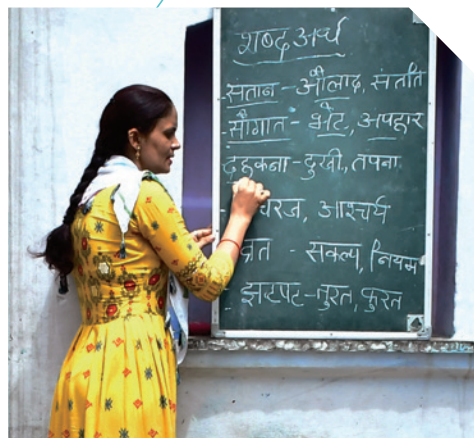 शब्द अर्थ
- संतान - औलाद, संतति
- सौगात - भेंट, अपहार
दहकना - दुखी, तपना
चरज, आश्चर्य
व्रत - सकल्प, नियम
- झटपट - तुरत, फुरत